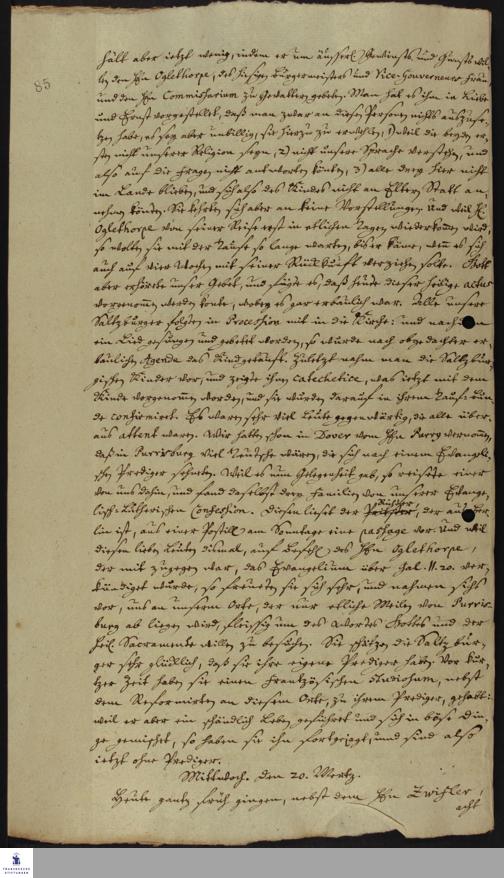 85
hält aber ietzt wenig, indem er um äusserl. Gewinsts und Gunsts wil-
len den Hn Oglethorpe, des hiesigen Bürgermeisters und Vice-Gouverneurs Frau,
und den Hn Commissarium zu Gevattern gebeten. Man hat es ihm in Liebe
und Ernst vorgestellet, daß man zwar an diesen Personen nichts auszuse-
tzen habe, es sey aber unbillig, sie hierzu zu erwehlen, 1) weil die beyden er-
sten nicht unserer Religion seyn, 2) nicht unsere Sprache verstehen, und
also auf die Fragen nicht antworten könten, 3) alle drey hier nicht
im Lande blieben, und sich also des Kindes nicht an Eltern Statt an-
nehmen könten. Sie kehrten sich aber an keine Vorstellungen. Und weil H.
Oglethorpe von seiner Reise erst in etlichen Tagen wiederkommen wird,
so wolten sie mit der Taufe so lange warten, bis er käme, wenn es sich
auch auf vier Wochen mit seiner Rückkunft verziehen solte. Gott
aber erhörete unser Gebet, und fügte es, daß heute dieser heilige actus
vorgenommen werden konte, wobey es gar erbaulich war. Alle unsere
Saltzburger folgten in Procession mit in die Kirche: und nachdem
ein Lied gesungen und gebetet worden, so wurde nach obgedachter er-
baulichen Agenda das Kind getauft. Zuletzt nahm man die Saltzbur-
gischen Kinder vor, und zeigte ihnen catechetice, was ietzt mit dem
Kinde vorgenommen worden, und sie wurden darauf in ihrem Tauf-Bun-
de confirmiret. Es waren sehr viel Leute gegenwärtig, die alle über-
aus attent waren. Wir hatten schon in Dover vom Hn Purry vernommen,
daß in Purrisburg viel Teutsche wären, die sich nach einem Evangeli-
schen Prediger sehnten. Weil es nun Gelegenheit gab, so reisete einer
von uns dahin, und fand daselbst drey Familien von unserer Evange-
lisch-Lutherischen Confession. Diesen lieset der Richter, der aus Ber-
lin ist, aus einer Postill am Sonntage eine passage vor. Und weil
diesen lieben Leuten dismal, auf Befehl des Hn Oglethorpe,
der mit zugegen war, das Evangelium über Gal. II. 20. ver-
kündiget wurde, so freueten sie sich sehr, und nahmen sichs
vor, uns an unserm Orte, der nur etliche Meilen von Purris-
burg ab liegen wird, fleissig um des Wortes Gottes und der
heil. Sacramente willen zu besuchen. Sie schätzen die Saltzbur-
ger sehr glücklich, daß sie ihre eigene Prediger haben. Vor kur-
tzer Zeit haben sie einen Frantzösischen Studiosum, nebst
den Reformirten an diesem Orte, zu ihrem Prediger, gehabt:
weil er aber ein schändlich Leben geführet und sich in böse Din-
ge gemischet, so haben sie ihn fortgejagt, und sind also
ietzt ohne Prediger.
Mittwoch. den 20. Mertz.
Heute gantz früh gingen, nebst dem Hn Zwifler,
acht
FRANCKESCHE
STIFTUNGEN